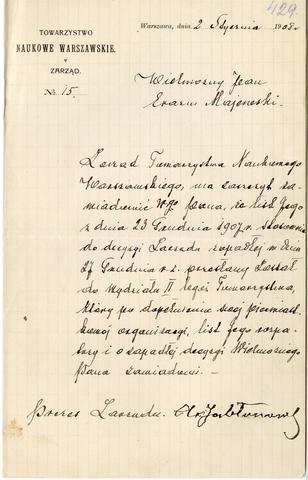 429.
TOWARZYSTWO
NAUKOWE WARSZAWSKIE.
ZARZĄD.
№ 15.
Warszawa, dnia 2 Stycznia 1908 r.
Wielmożny Pan
Erazm Majewski.
Zarząd Towarzystwa Naukowego
Warszawskiego, ma zaszczyt za-
wiadomić W-go Pana, że list Jego
z dnia 23 Grudnia 1907 r. stosownie
do decyzji Zarządu zapadłej w dniu
27 Grudnia r. z. przesłany został
do Wydziału II tegoż Towarzystwa,
który po dopełnieniu swej pierwiast-
kowej organizacji, list Jego rozpa-
trzy i o zapadłej decyzji Wielmożnego
Pana zawiadomi. —
Prezes Zarządu. Al Jabłonowski